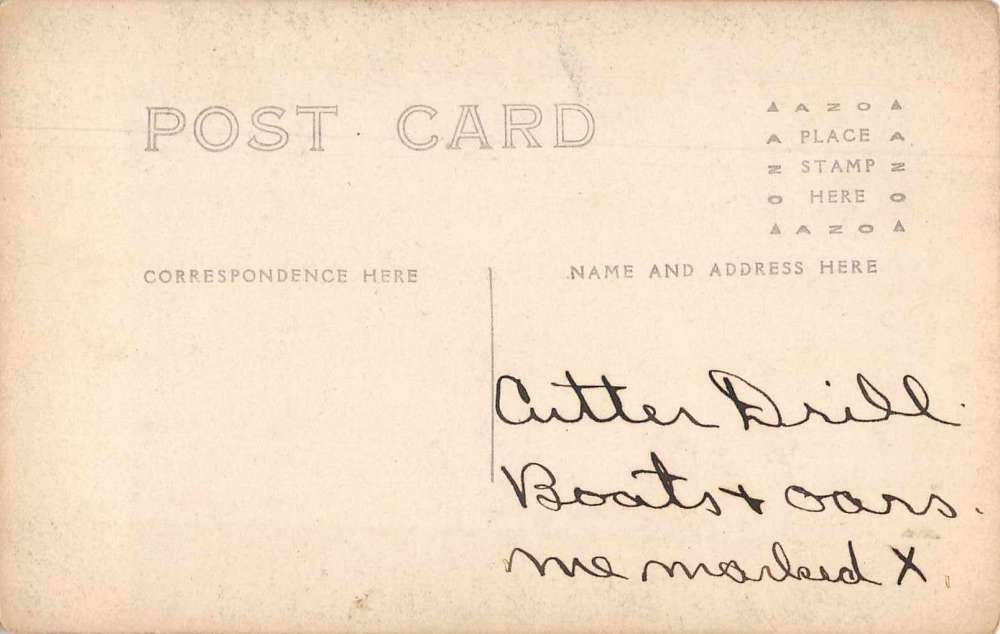 POST CARD
▲ A Z O ▲
A PLACE A
Z STAMP Z
O HERE O
▲ A Z O ▲
CORRESPONDENCE HERE
NAME AND ADDRESS HERE
Cutter Drill.
Boats + oars.
me marked X.